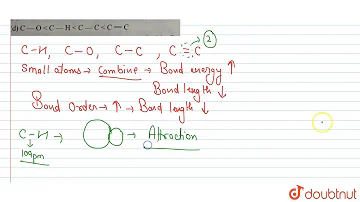 d) C—O<C—H<C—C<C—C
C-H, C-O, C-C, C=C 2
Small atoms → Combine → Bond energy ↑
Bond length ↓
Bond Order → ↑ → Bond length ↓
C-H → → Attraction
109pm
doubtnut